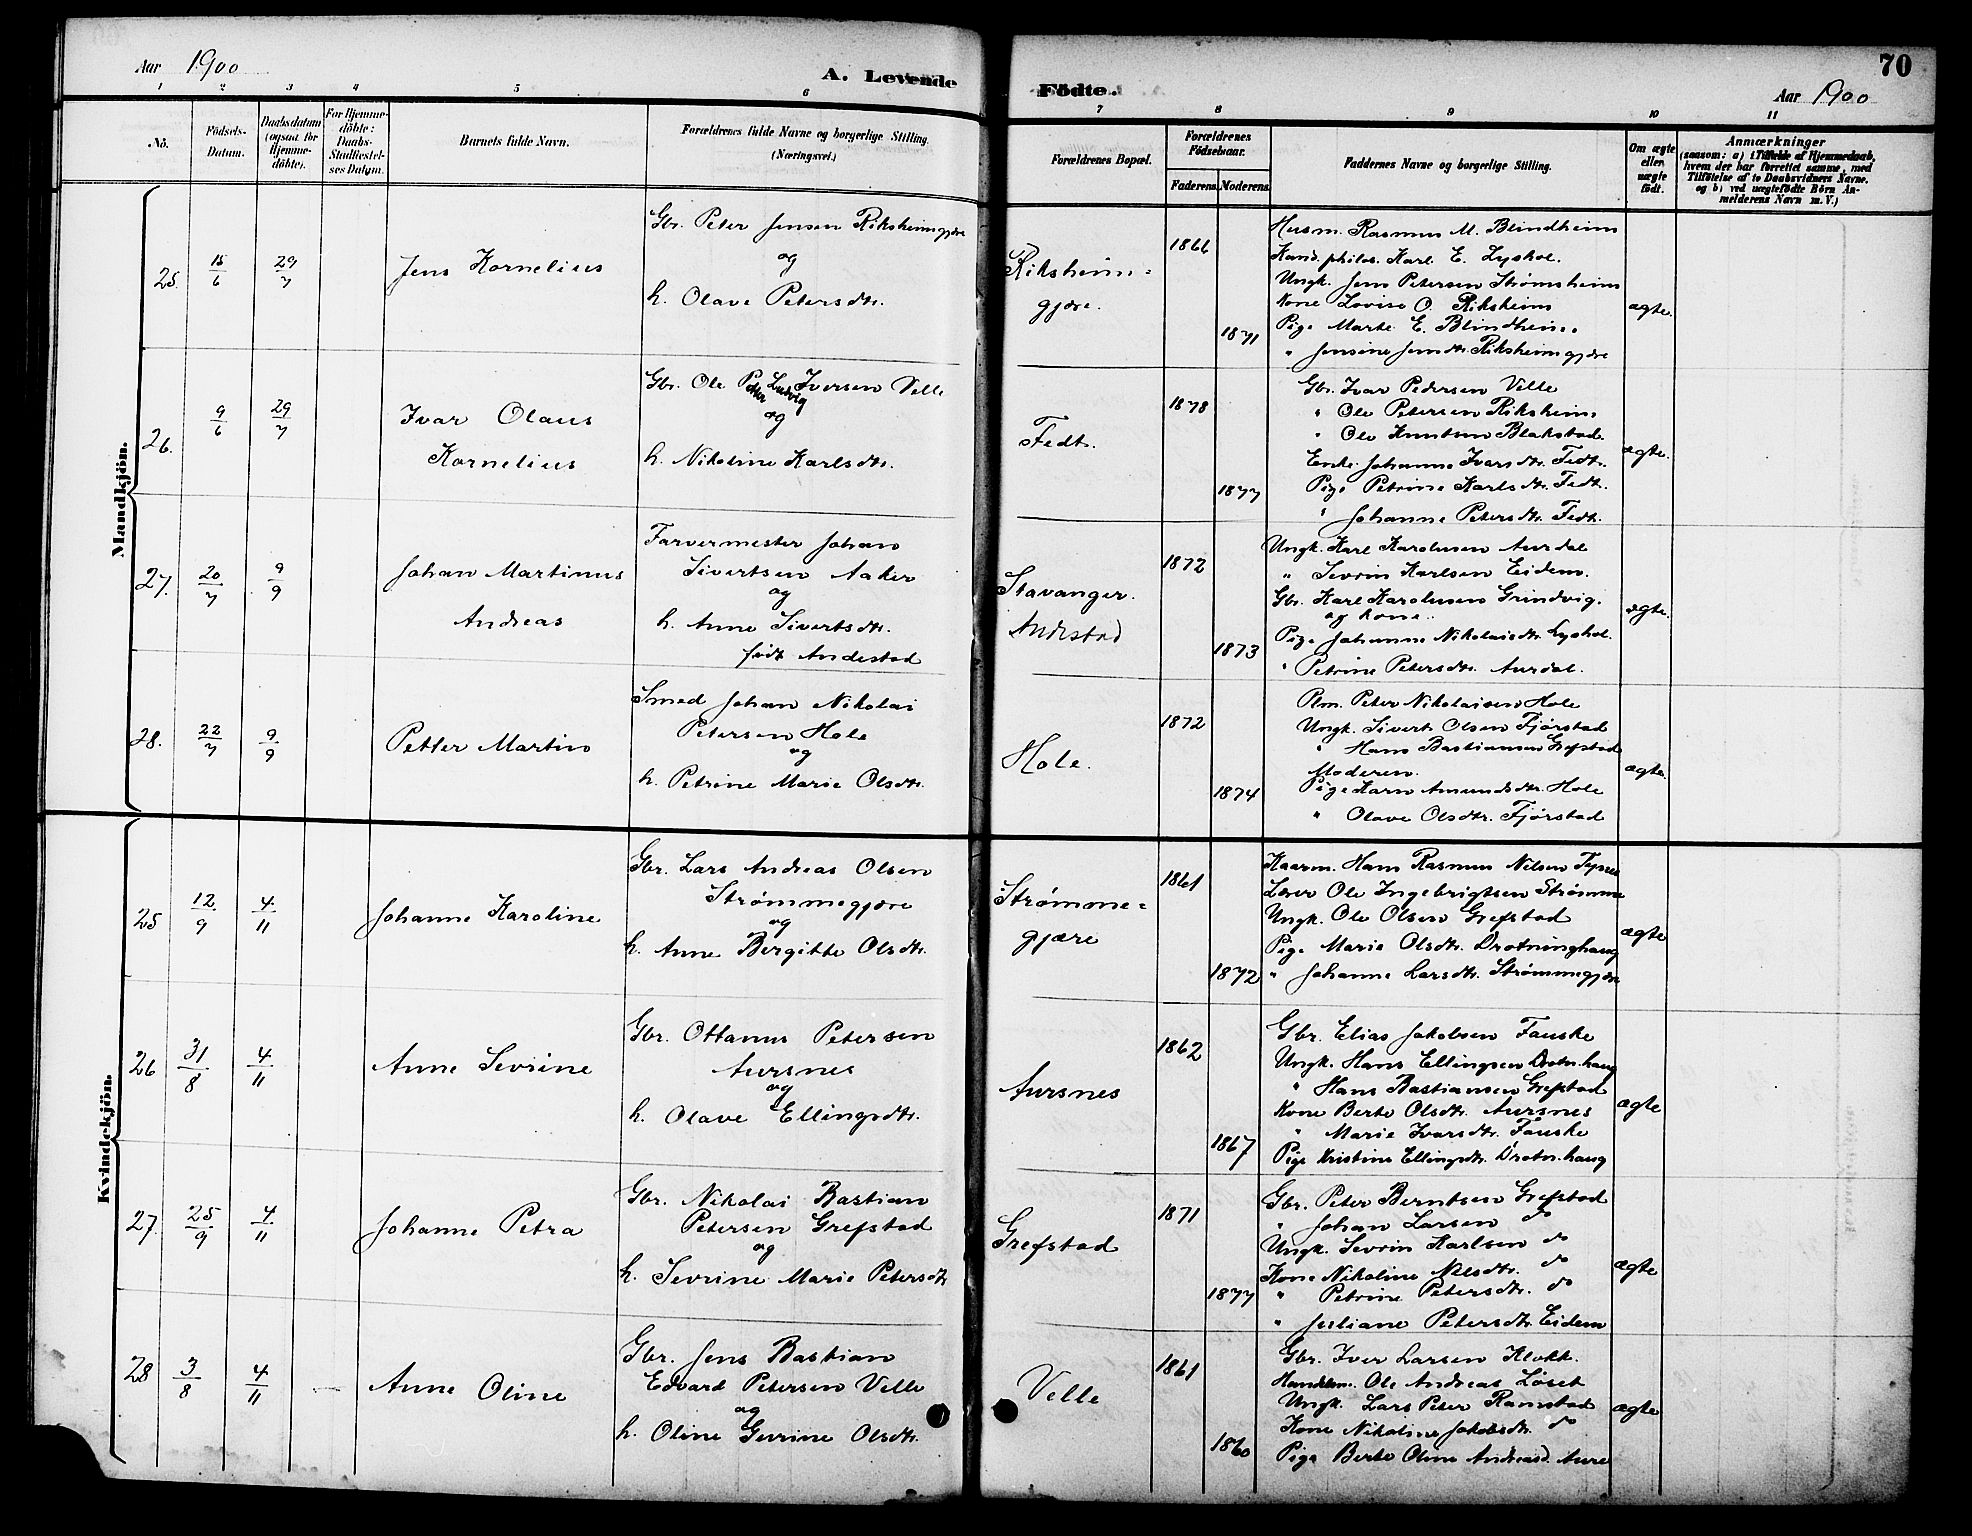 Aar 1900
A. Levende
1 2 3 4 5 6
No.
Födsels-
Datum.
Daabsdatum
(ogsaa for
Hjemme-
döbte).
For Hjemme-
döbte:
Daabs-
Stadfæstel-
ses Datum.
Barnets fulde Navn.
Forældrenes fulde Navne og borgerlige Stilling.
(Næringsvei.)
Mandkjön.
25. 15/6 29/7
Jens Kornelius
Gbr. Peter Jensen Riksheimgjære
og
h. Olave Petersdtr.
26. 9/6 29/7
Ivar Olaus
Kornelius
Gbr. Ole Petter Ludvig Iversen Velle
og
h. Nikoline Karlsdtr.
27. 20/7 9/9
Johan Martinus
Andreas
Farvermester Johan
Sivertsen Aaker
og
h. Anne Sivertsdtr.
født Andestad
28. 22/7 9/9
Petter Martin
Smed Johan Nikolai
Petersen Hole
og
h. Petrine Marie Olsdtr.
Kvindekjön.
25 12/9 4/11
Johanne Karoline
Gbr. Lars Andreas Olsen
Strømmegjære
og
h. Anne Bergitte Olsdtr.
26 31/8 4/11
Anne Sevrine
Gbr. Ottanus Petersen
Aursnes
og
h. Olave Ellingsdtr.
27. 25/9 4/11
Johanne Petra
Gbr. Nikolai Bastian
Petersen Grefstad
og
h. Sevrine Marie Petersdtr
28 3/8 4/11
Anne Oline
Gbr. Jens Bastian
Edvard Petersen Velle
og
h. Oline Gurine Olsdtr.
Födte.
70
Aar 1900
7 8 9 10 11
Forældrenes Bopæl.
Forældrenes
Födselsaar.
Faderens.
Moderens.
Faddernes Navne og borgerlige Stilling.
Om ægte
eller
uægte
födt.
Anmærkninger
(saasom: a) i Tilfælde af Hjemmedaab,
hvem der har forrettet samme, med
Tilföielse af to Daabsvidners Navne.
og b) ved uægtefödte Börn An-
melderens Navn m. V.)
Riksheim-
gjære.
1866
1871
Husm. Rasmus M. Blindheim
Kand. philos. Karl E. Lyshol.
Ungk. Jens Petersen Strømsheim
Kone Lovise O. Riksheim
Pige Marte E. Blindheim.
" Jensine Jensdtr. Riksheimgjære
ægte.
Fedt.
1878
1877
Gbr. Ivar Pedersen Velle
" Ole Petersen Riksheim.
" Ole Knutsen Blakstad.
Enke Johanne Ivarsdtr. Fedt.
Pige Petrine Karlsdtr. Fedt.
" Johanne Petersdtr. Fedt.
ægte.
Stavanger.
Andestad
1872
1873
Ungk. Karl Karolusen Aurdal
" Sevrin Karlsen Eidem.
Gbr. Karl Karolusen Grindvig.
og Kone.
Pige Johanne Nikolaisdtr. Lyshol.
" Petrine Petersdtr. Aurdal.
ægte.
Hole.
1872
1874
Plm. Peter Nikolaisen Hole
Ungk. Sivert Olsen Fjørstad
" Hans Bastiansen Grefstad
Moderen.
Pige Karn Amundsdtr. Hole
" Olave Olsdtr. Fjørstad
ægte.
Strømme-
gjære
1861
1872
Kaarm. Hans Rasmus Nilsen
Lærer Ole Ingebrigtsen Strømme
Ungk. Ole Olsen Grefstad
Pige Marie Olsdtr. Drotninghaug
" Johanne Larsdtr. Strømmegjære
ægte
Aursnes
1862
1867
Gbr. Elias Jakobsen Fauske
Ungk. Hans Ellingsen Drotn.haug
" Hans Bastiansen Grefstad
Kone Berte Olsdtr. Aursnes
" Marie Ivarsdtr. Fauske
Pige Kristine Ellingsdtr. Drotn.haug
ægte
Grefstad
1871
1877
Gbr. Peter Berntsen Grefstad
" Johan Larsen do
Ungk. Sevrin Karlsen do
Kone Nikoline Nilsdtr. do
" Petrine Petersdtr. do
" Juliane Petersdtr. Eidem
ægte
Velle
1861
1860
Gbr. Iver Larsen Klokk.
Handelsm. Ole Andreas Løset
Ungk. Lars Peter Ramstad
Kone Nikoline Jakobsdtr. do
Pige Berte Oline Andreasd. Aure
ægte